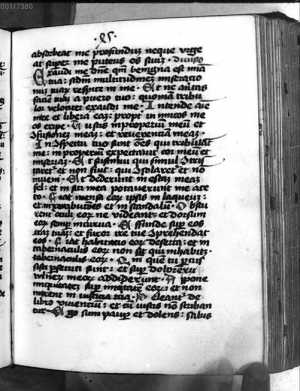 00117380
.85.
absorbeat me profundum neque urge
at super me puteus os suuz. Diuisio
Exaudi me dne qm benigna est mia
tua: scdm multitudinez miseratio
nuz tuaz respice in me. Et ne auertas
faciem tuaz a puero tuo: quoniam tribu
lor velociter exaudi me. Intende aie
mee et libera eaz: propter inimicos me
os eripe. Tu scis improperiuz meuz et
confusionez meaz: et reuerentiaz meaz.
In conspectu tuo sunt oes qui tribulant
me: improperiu expectauit cor meu et
miseriaz. Et sustinui qui simul contris
taret et non fuit: qui consolaret et no
inueni. Et dederunt in escaz meaz
fel: et in siti mea potauerunt me ace
to. Fiat mensa eoz ipsis in laqueuz:
et in retributiones et in scandalu. Obscu
rentur oculi eoz ne videant: et dorsum
eoz semp incurua. Effunde sup eos
iraz tuaz: et furor ire tue comprehendat
eos. Fiat habitatio eoz deserta: et in
tabernaculis eoz non sit qui inhabitet.
Qm que tu percus
sisti persecuti sunt: et sup dolorem
vulnez meoz addiderunt. Appone
iniquitatez sup iniquitatez eoz: et non
intrent in iusticia tua. Deleant de
libro viuentiu: et cu iustis no scriban
tur. Ego sum paup et dolens: salus